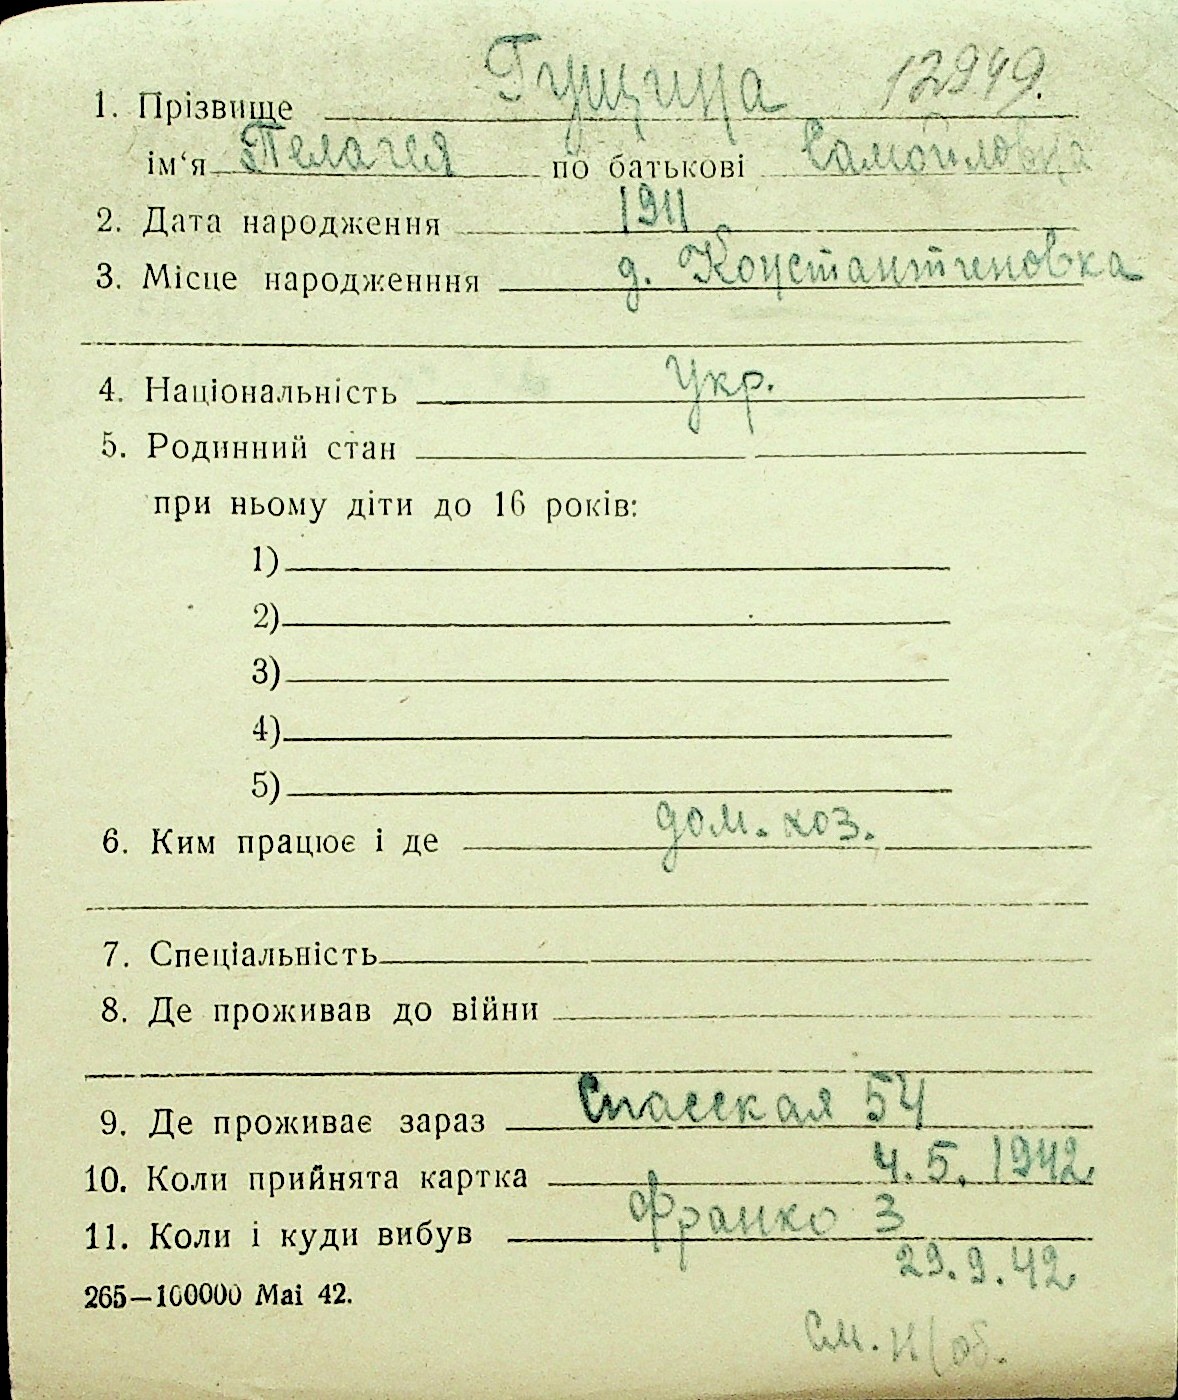 1. Прізвище Гущина 12949.
ім'я Пелагея по батькові Самойловка
2. Дата народження 1911
3. Місце народженння д. Константиновка
4. Національність Укр.
5. Родинний стан
при ньому діти до 16 років:
1)
2)
3)
4)
5)
6. Ким працює і де дом. хоз.
7. Спеціальність
8. Де проживав до війни
9. Де проживає зараз Спасская 54
10. Коли прийнята картка 4.5.1942
11. Коли і куди вибув Франко 3
29.9.42
265—100000 Маі 42.
См. н/об.